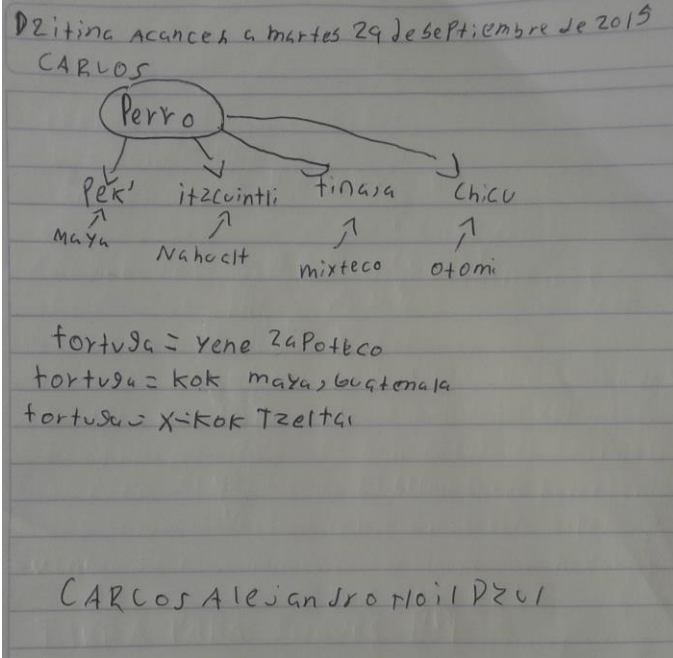 Dzitina Acanceh a martes 29 de septiembre de 2015
CARLOS
Perro
Pek' itzcuintli tinasa Chicu
maya Nahuclt mixteco otomi
tortuga = yene zapoteco
tortuga = kok maya, Guatemala
tortuga = x-kok Tzeltal
CARLOS Alejandro Moil Dzul